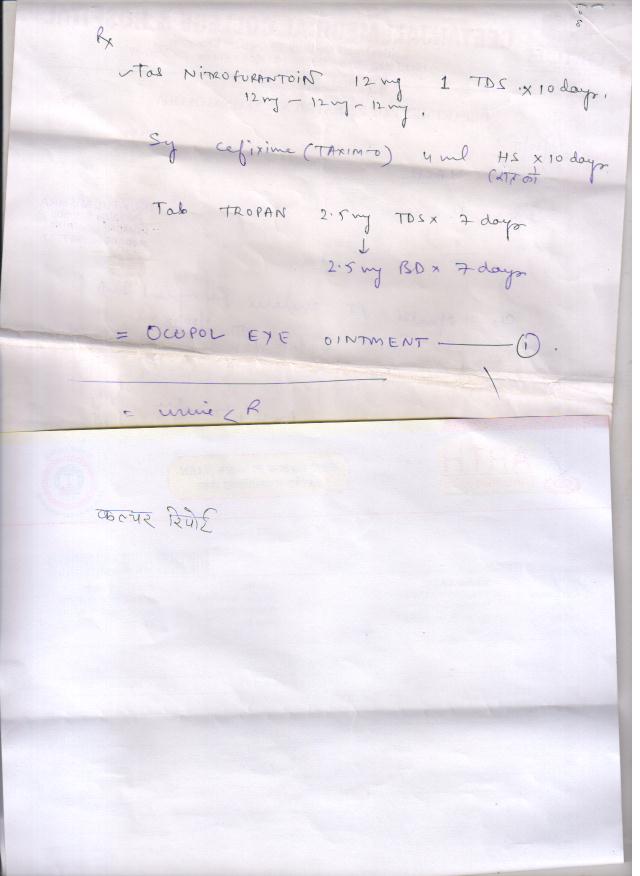 Rx
Tab NITROFURANTOIN 12 mg 1 TDS x 10 days.
12 mg - 12 mg - 12 mg.
Sy cefixime (TAXIM-O) 4 ml HS x 10 days
(रात को
Tab TROPAN 2.5 mg TDS x 7 days
↓
2.5 mg BD x 7 days
= OCUPOL EYE OINTMENT —— 1.
= urine < R
कल्चर रिपोर्ट